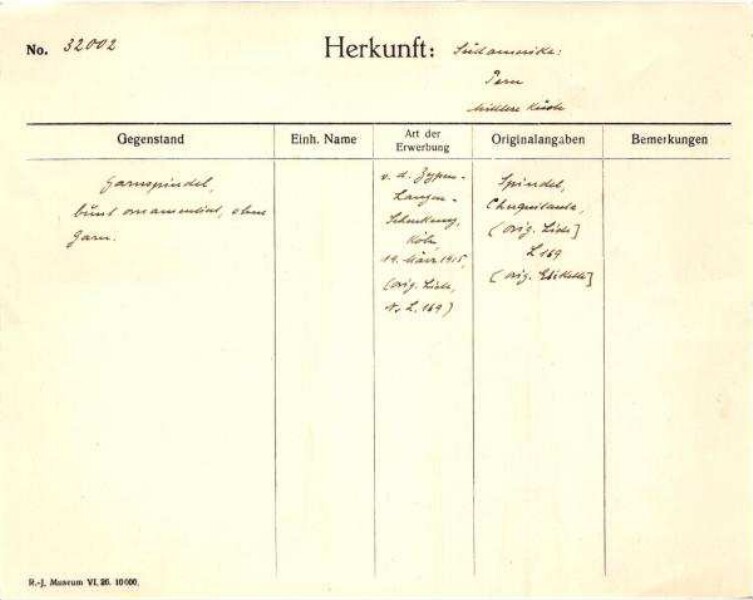 No. 32002
Herkunft: Südamerika:
Peru
Mittlere Küste
Gegenstand
Einh. Name
Art der
Erwerbung
Originalangaben
Bemerkungen
Garnspindel,
bunt ornamentiert, ohne
Garn.
v. d. Zypen-
Langen-
Schenkung,
Köln,
19. März 1915,
(orig. Liste,
L. 169)
Spindel,
Chuquitanta,
(orig. Liste]
L 169
(orig. Etikette]
R.-J. Museum VI. 26. 10 000.